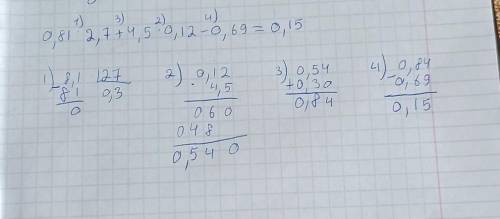 1) 3) 2) 4)
0,81 : 2,7 + 4,5 · 0,12 - 0,69 = 0,15
1) - 8,1 | 27
81 0,3
0
2) · 0,12
4,5
060
048
0,540
3) 0,54
+ 0,30
0,84
4) - 0,84
0,69
0,15